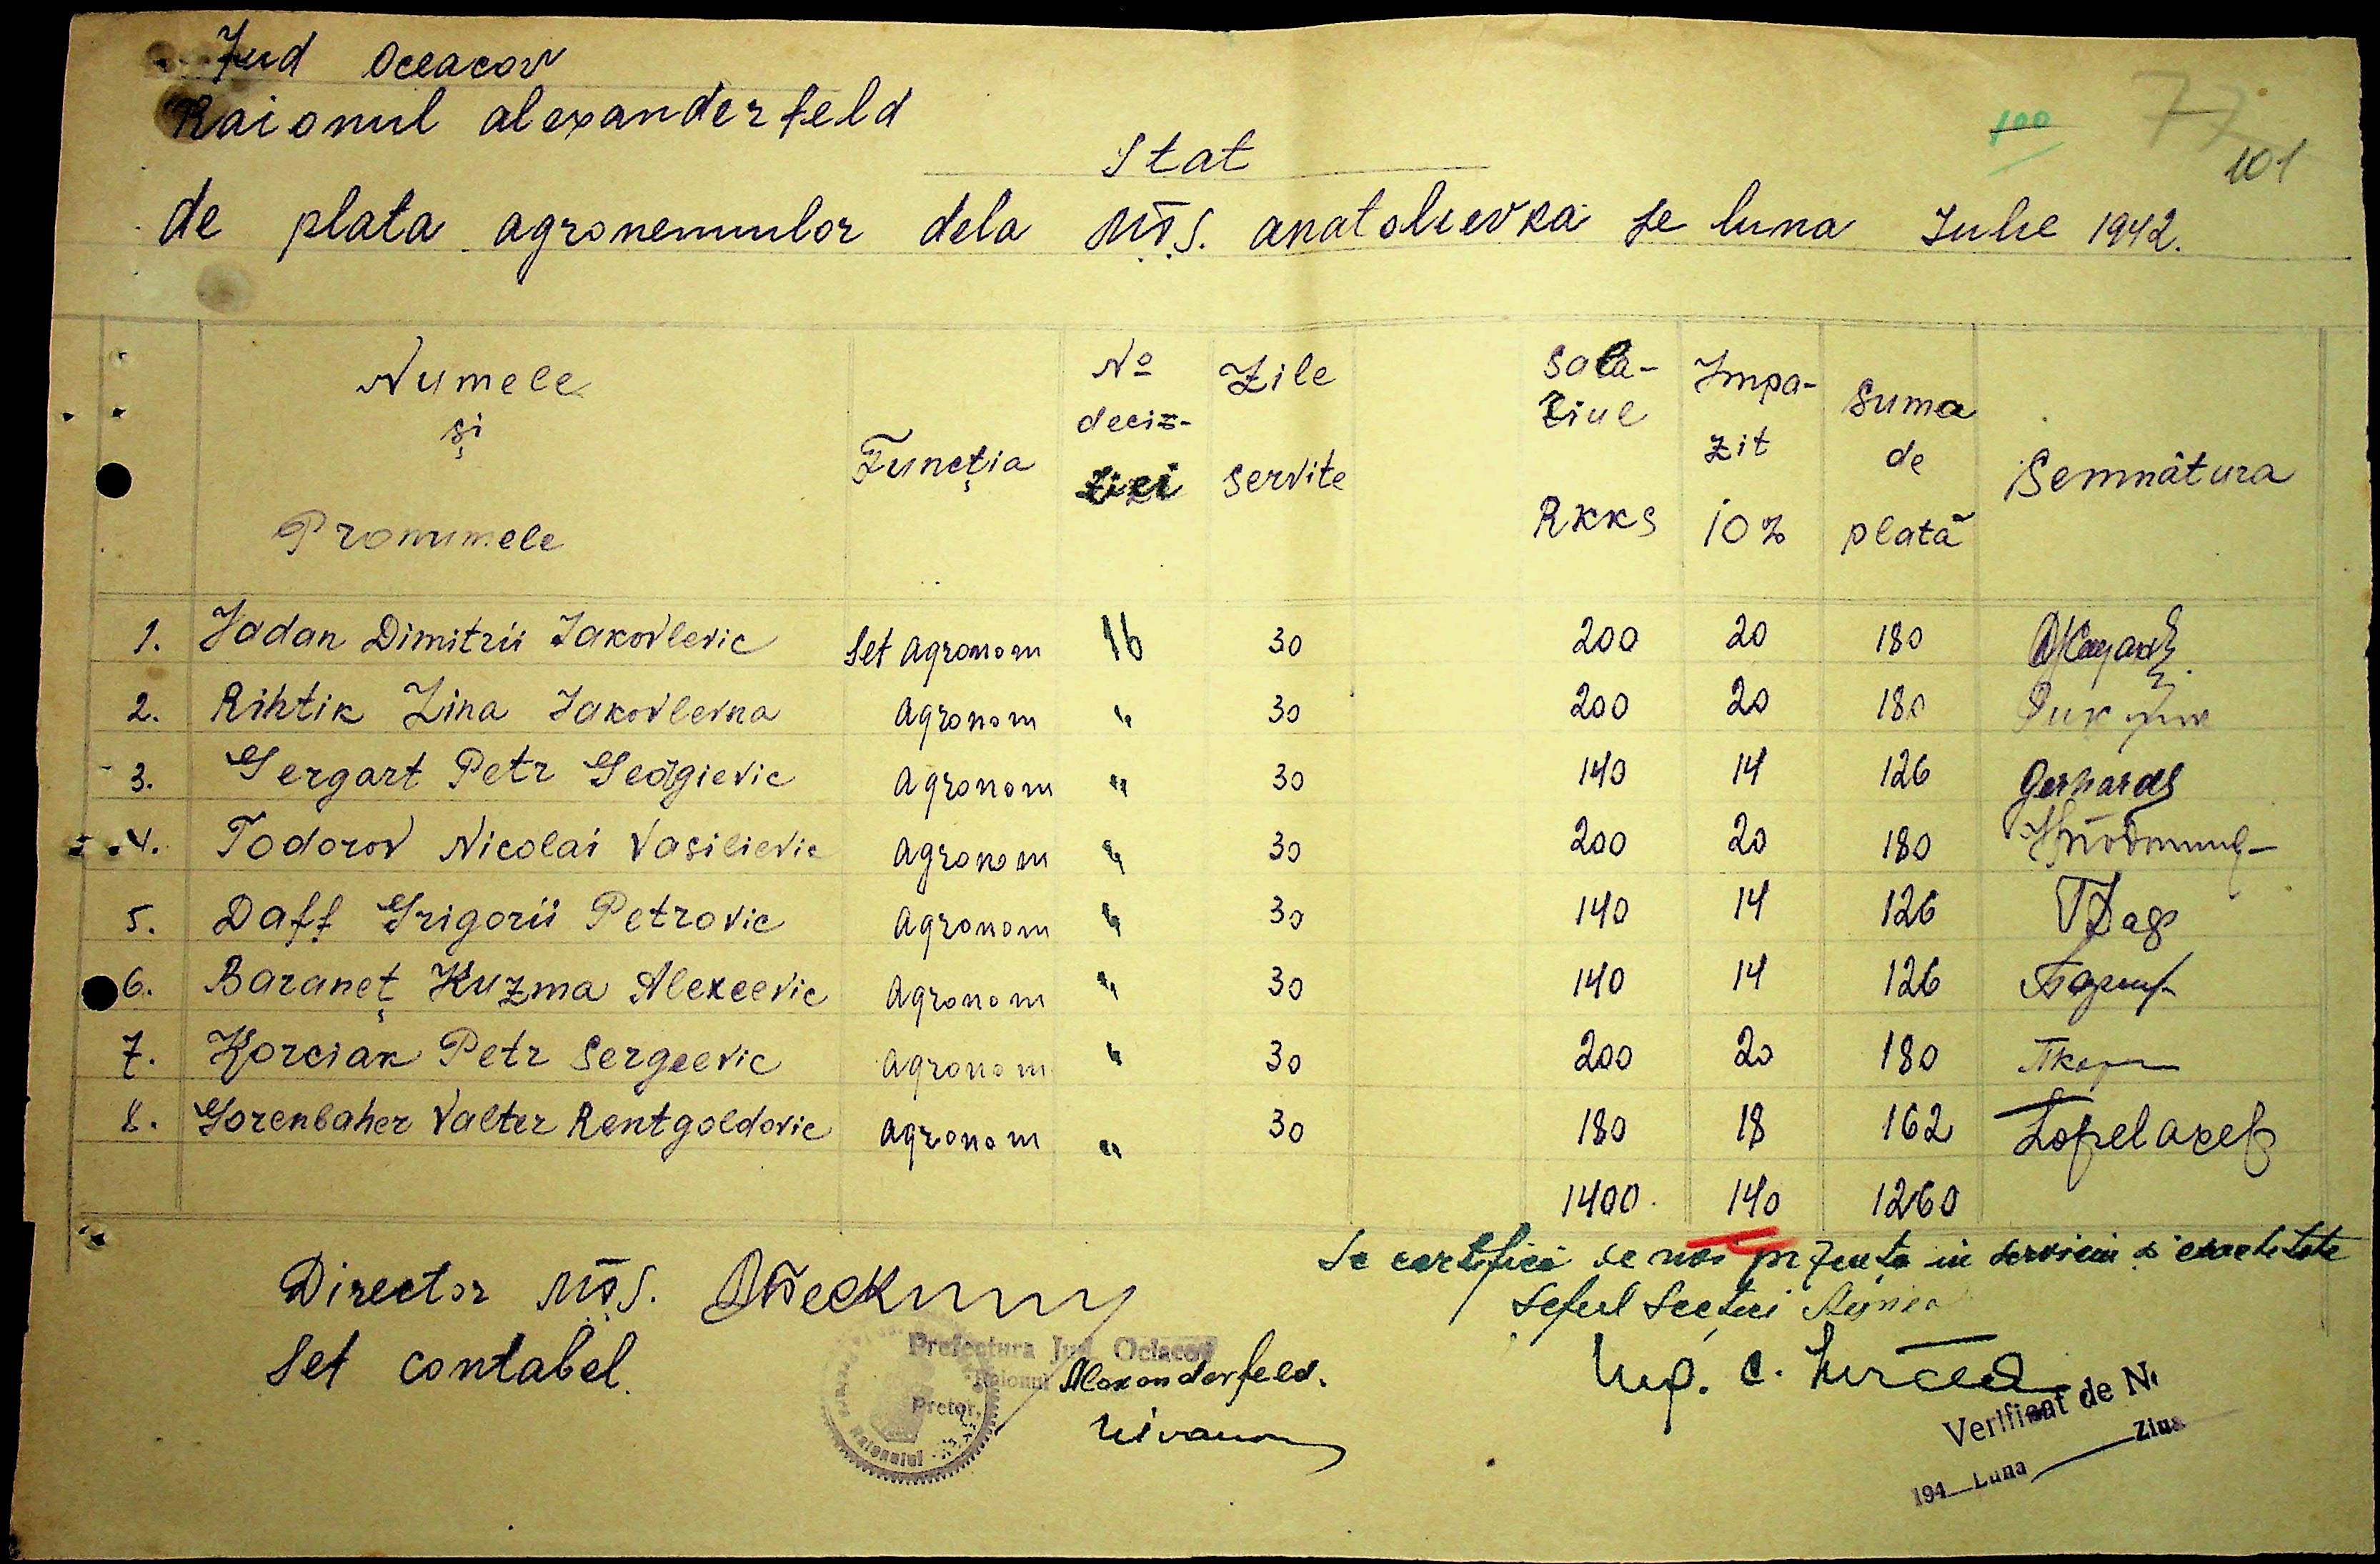 Jud Oceacov
Raionul alexanderfeld
100
77
101
Stat
de plata agronemunlor dela M.T.S. anatolievka pe luna Iulie 1942.
Numele și Pronumele Funcția No deciz-ziei Zile servite Sala-riul RKKS Impo-zit 10% Suma de plată Semnătura
1. Jadan Dimitrii Iakovlevic Șef agronom 16 30 200 20 180
2. Rihtik Zina Iakovlevna agronom " 30 200 20 180
3. Gergart Petr Georgievic agronom " 30 140 14 126 Gerhardt
4. Todorov Nicolai Vasilievic agronom " 30 200 20 180
5. Daff Grigorii Petrovic agronom " 30 140 14 126
6. Baraneț Kuzma Alexeevic agronom " 30 140 14 126
7. Korciak Petr Sergeevic agronom " 30 200 20 180
8. Gorenbaher Valter Rentgoldovic agronom " 30 180 18 162
1400 140 1260
Director M.T.S.
Șef contabel.
Prefectura Jud. Ociacov
Raionul Alexanderfeld.
Pretor,
Se certifică de noi prezența in serviciu și exactitate
Șeful Secției
Ing. C.
Verificat de N
194__Luna____Ziua